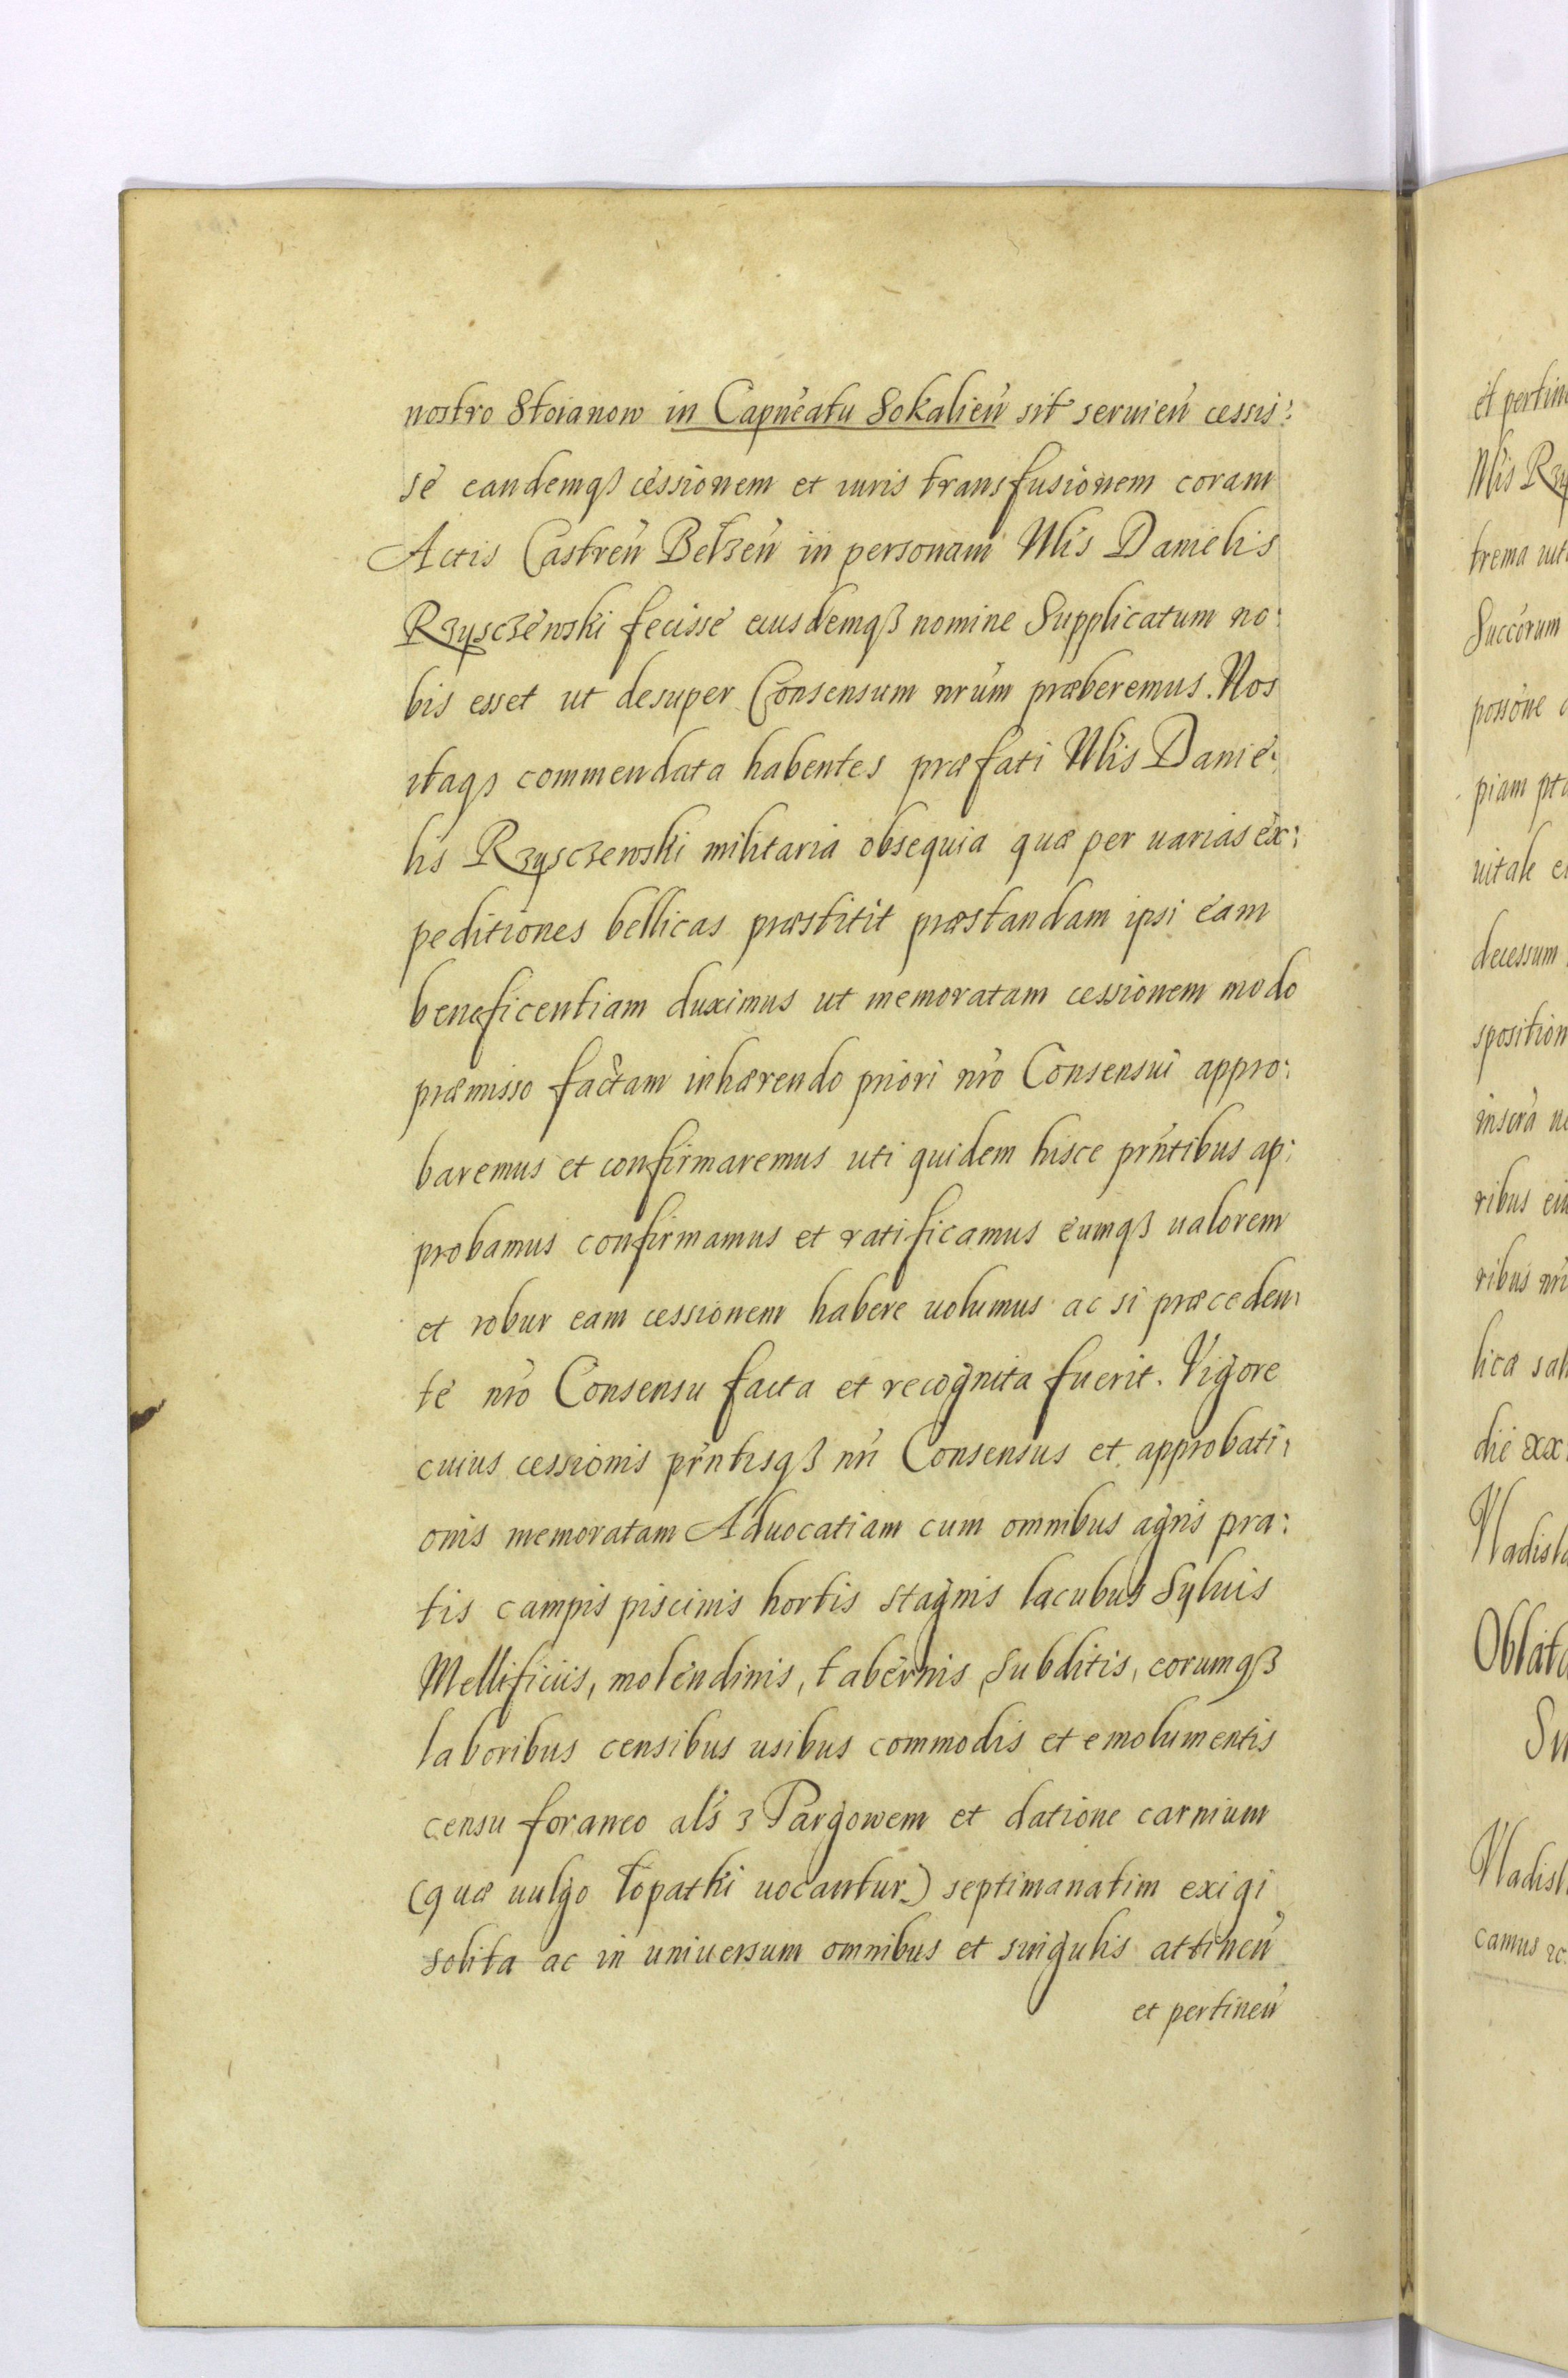 nostro Stoianow in Capneatu Sokalien sit seruien cessis:
se eandemqȝ cessionem et iuris transfusionem coram
Actis Castren Belzen in personam Mlis Danielis
Rzysczewski fecisse eiusdemqȝ nomine Supplicatum no:
bis esset ut desuper Consensum nrum præberemus. Nos
itaqȝ commendata habentes præfati Mlis Danie:
lis Rzysczewski militaria obsequia quæ per uarias ex:
peditiones bellicas præstitit præstandam ipsi eam
beneficentiam duximus ut memoratam cessionem modo
præmisso factam inhærendo priori nro Consensui appro:
baremus et confirmaremus uti quidem hisce prntibus ap:
probamus confirmamus et ratificamus eumqȝ ualorem
et robur eam cessionem habere uolumus ac si præceden:
te nro Consensu facta et recognita fuerit. Vigore
cuius cessionis prntisqȝ nri Consensus et approbati:
onis memoratam Aduocatiam cum omnibus agris pra:
tis campis piscinis hortis stagnis lacubus Syluis
Mellificiis, molendinis, tabernis, Subditis, eorumqȝ
laboribus censibus usibus commodis et emolumentis
censu foraneo als z Pargowem et datione carnium
(quæ uulgo Łopatki uocantur) septimanatim exigi
solita ac in uniuersum omnibus et singulis attinen
et pertinen
et pertin
Mlis Rzy
trema uit
Succorum
possione
piam pt
uitale e
decessum
sposition
inscra n
ribus eiu
ribus nri
lica sal
die xx
Vladisla
Oblata
Vladisl
camus